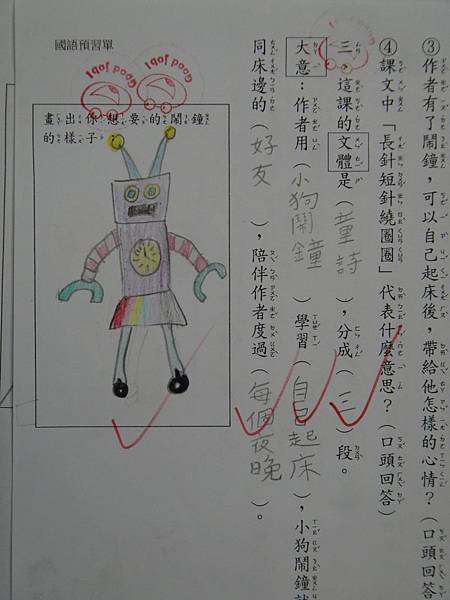 ③作者有了鬧鐘，可以自己起床後，帶給他怎樣的心情？（口頭回答
④課文中「長針短針繞圈圈」代表什麼意思？（口頭回答）
三、這課的文體是（童詩），分成（三）段。
大意：作者用（小狗鬧鐘）學習（自己起床），小狗鬧鐘就
同床邊的（好友），陪伴作者度過（每個夜晚）。
國語預習單
Good job!
Good job!
畫出你想要的鬧鐘
的樣子：